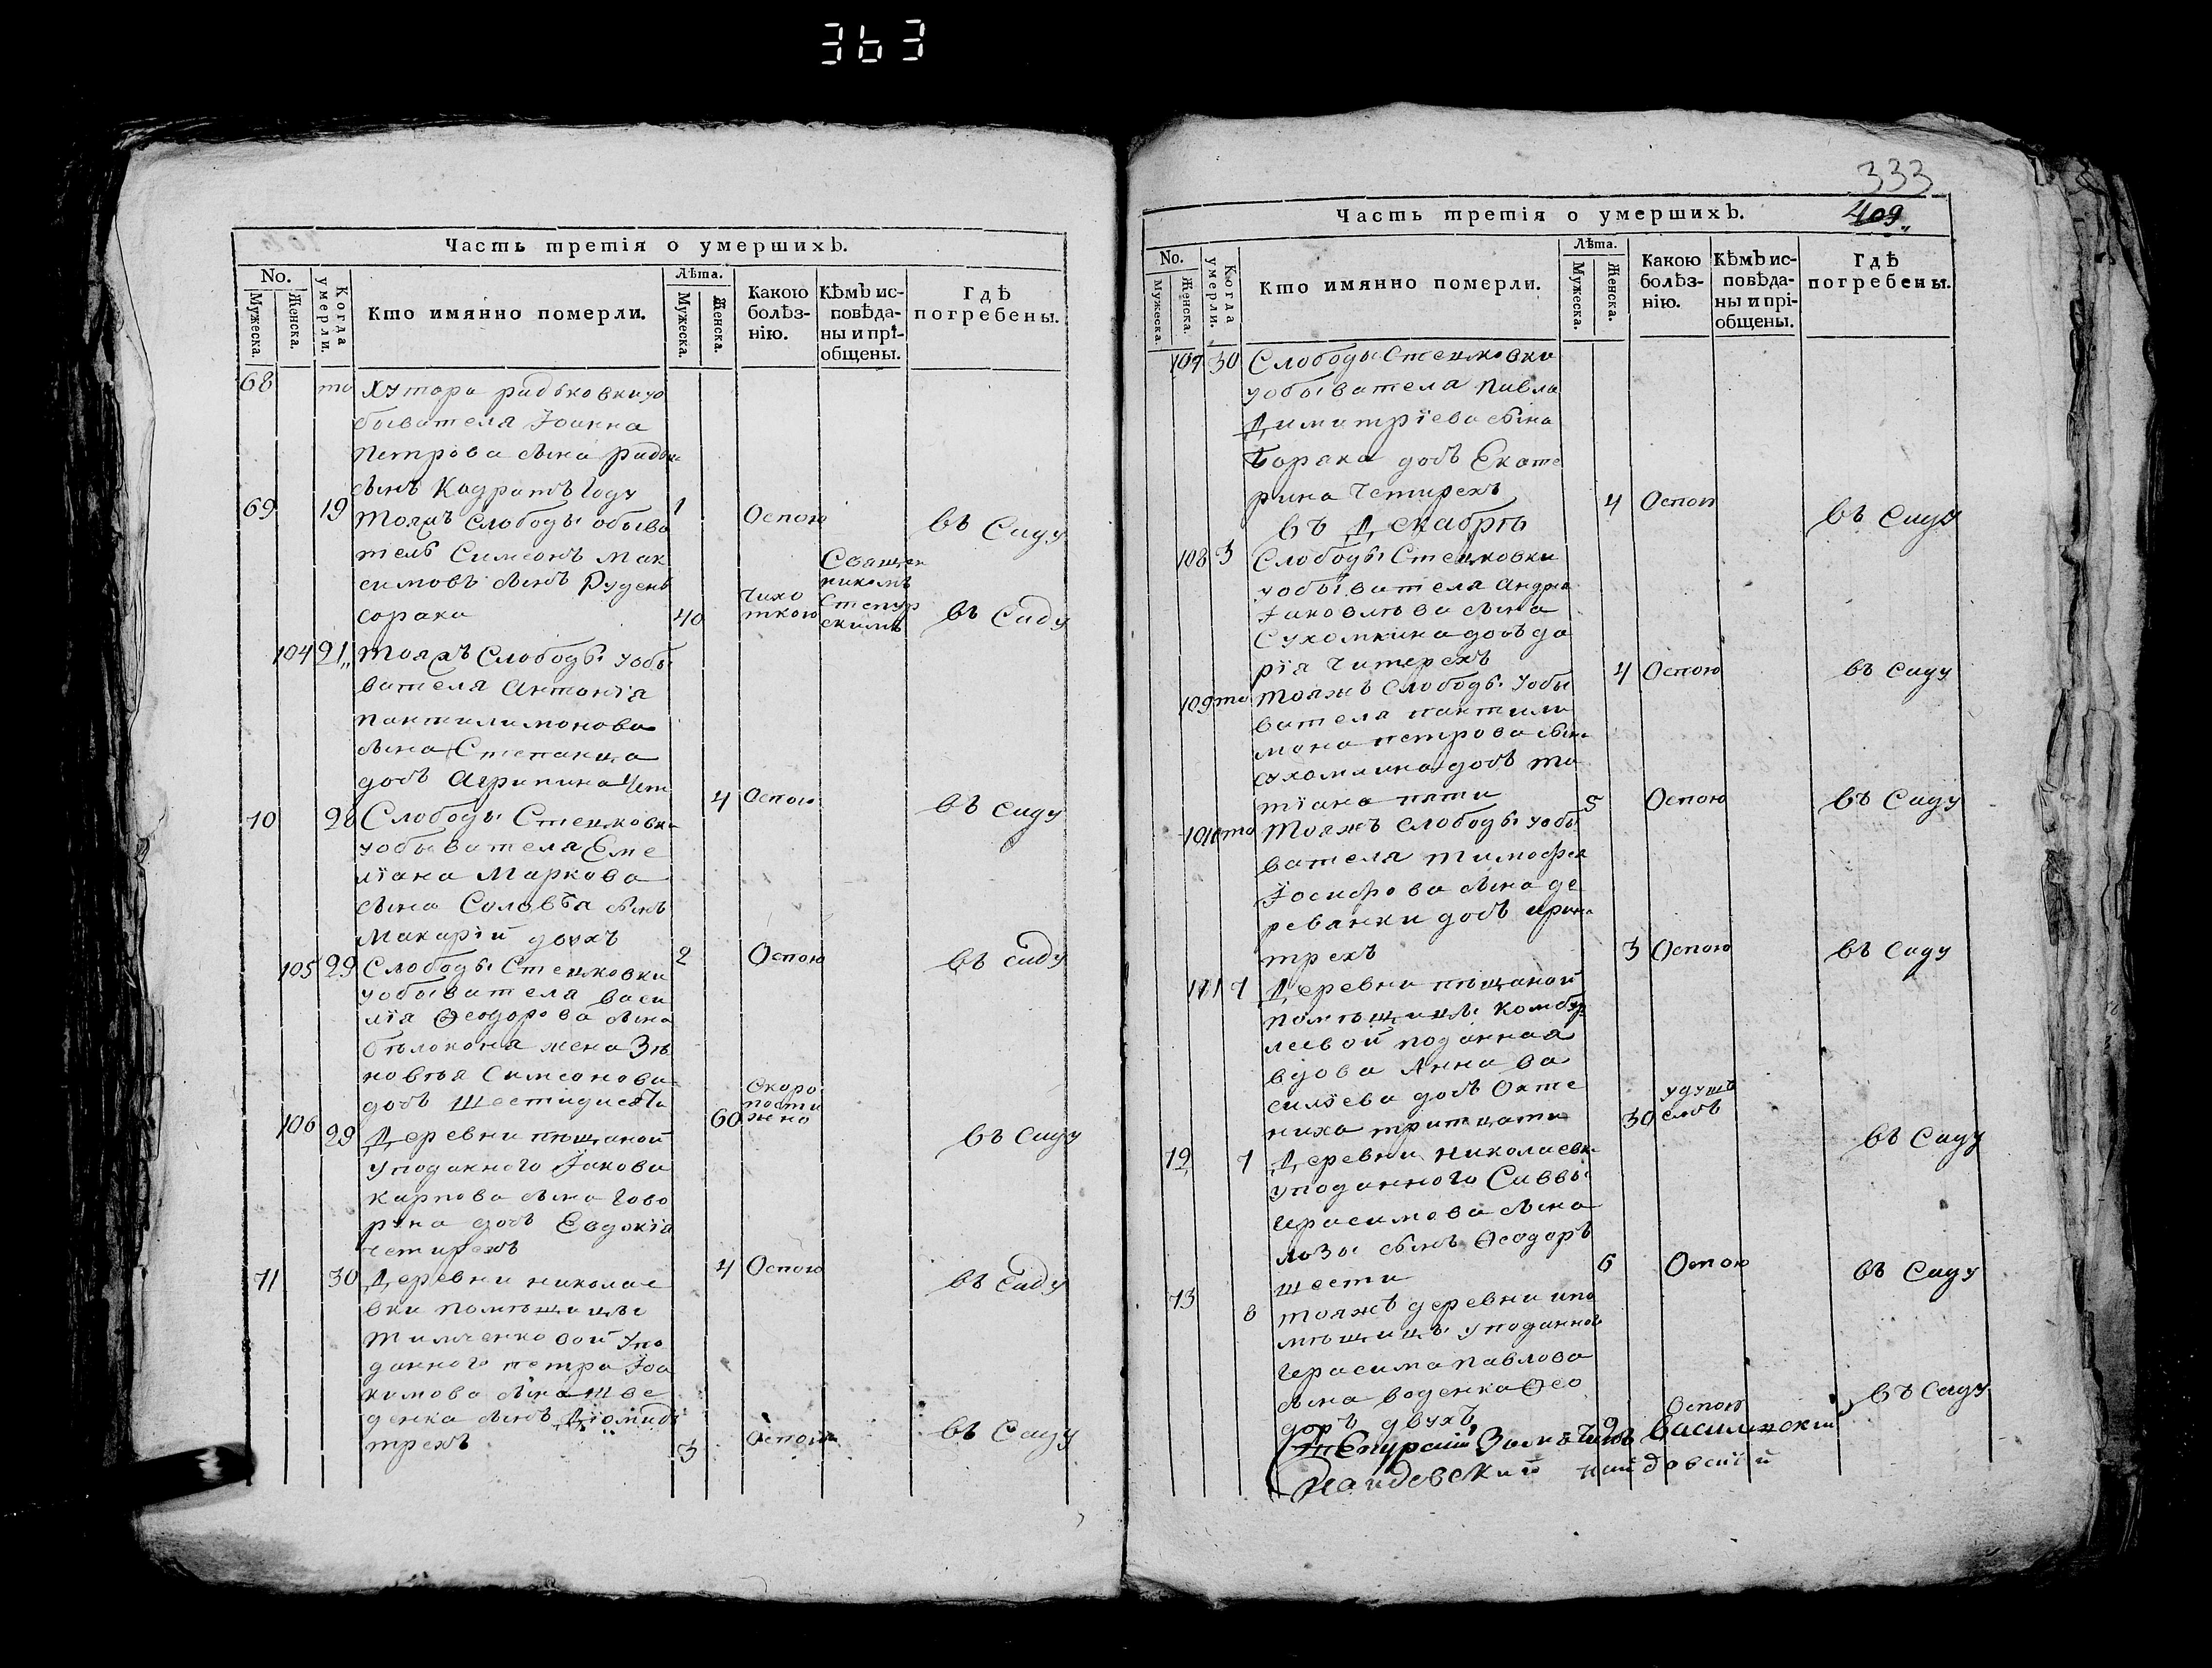 363
Часть третія о умершихъ.
No.
Мужеска.
Женска.
Когда умерли.
Кто имянно померли.
Лѣта.
Мужеска.
Женска.
Какою болѣз-
нію.
Кѣмъ ис-
повѣда-
ны и прі-
общены.
Гдѣ
погребены.
68 то Хутора радьковки уо
бывателя Іоанна
Петрова сына
сынъ Кадратъ году 1 Оспою въ Саду
69 19 Тояжъ Слободы обыва
тель Симеонъ Мак
симовъ сынъ Рудень
сорака 40 чихо
ткою Священ
никомъ
въ Саду
104 21 Тояжъ Слободы уобы
вателя Антонія
пантилимонова
сына Степанца
дочь Агрипина чет 4 Оспою въ саду
70 28 Слободы Стецковки
уобывателя Еме
ліана Маркова
сына Соловѣя сынъ
Макарій двухъ 2 Оспою въ саду
105 29 Слободы Стецковки
уобывателя Васи
лія Ѳеодорова сына
бѣлоконя жена Зѣ
новѣя Симеонова
дочь шестидисятъ 60 Скоро
пости
жно въ саду
106 29 Деревни пѣщаной
уподанного Іакова
Карпова сына Гово
руна дочь Евдокія
четирехъ 4 Оспою въ Саду
71 30 Деревни николае
вки помѣщицы
Тимченковой упо
данного петра Іоа
кимова сына шве
денка сынъ Діомидъ
трехъ 3 Оспою въ Саду
333
409
Часть третія о умершихъ.
No.
Мужеска.
Женска.
Когда умерли.
Кто имянно померли.
Лѣта.
Мужеска.
Женска.
Какою
болѣз-
нію.
Кѣмъ ис-
повѣда-
ны и прі-
общены.
Гдѣ
погребены.
107 30 Слободы Стецковки
уобывателя Павла
Димитріева сына
Боряка дочь Екате
рина четирехъ 4 Оспою въ Саду
въ Декабрѣ
108 3 Слободы Стецковки
уобывателя Андрея
Іаковлѣва сына
Сухомлина дочь да
рія читерехъ 4 Оспою въ Саду
109 то Тояжъ Слободы уобы
вателя пантили
мона петрова сына
сухомлина дочь та
тіана пяти 5 Оспою въ Саду
110 то Тояжъ Слободы уобы
вателя тимофея
Іосифова сына де
реванки дочь ирина
трехъ 3 Оспою въ Саду
111 7 Деревни пѣщаной
помѣщицы Комбур
леевой поданная
вдова Анна Ва
силіева дочь Охте
ниха тритцати 30 удуш
ъемъ въ Саду
72 7 Деревни Николаевки
уподанного Саввы
Герасимова сына
лозы сынъ Ѳеодоръ
шести 6 Оспою въ Саду
73 8 Тояжъ деревни ипо
мѣщицы уподанного
Герасима Павлова
сына воденка Ѳео
доръ двухъ 2 Оспою въ Саду